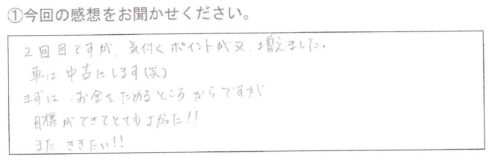 ①今回の感想をお聞かせください。
2回目ですが、気付くポイントが又、増えました。
車は中古にします(笑)
まずは、お金をためるところからですが
目標ができてとてもよかった!!
また ききたい!!